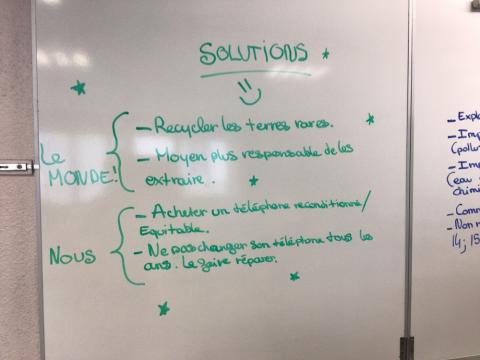 SOLUTIONS
Le MONDE!
— Recycler les terres rares.
— Moyen plus responsable de les
extraire.
NOUS
— Acheter un téléphone reconditionné/
Equitable.
— Ne pas changer son téléphone tous les
ans. Le faire réparer.
— Expl
— Imp
(pollu
— Im
(eau
chimi
— Comm
— Non r
14; 15